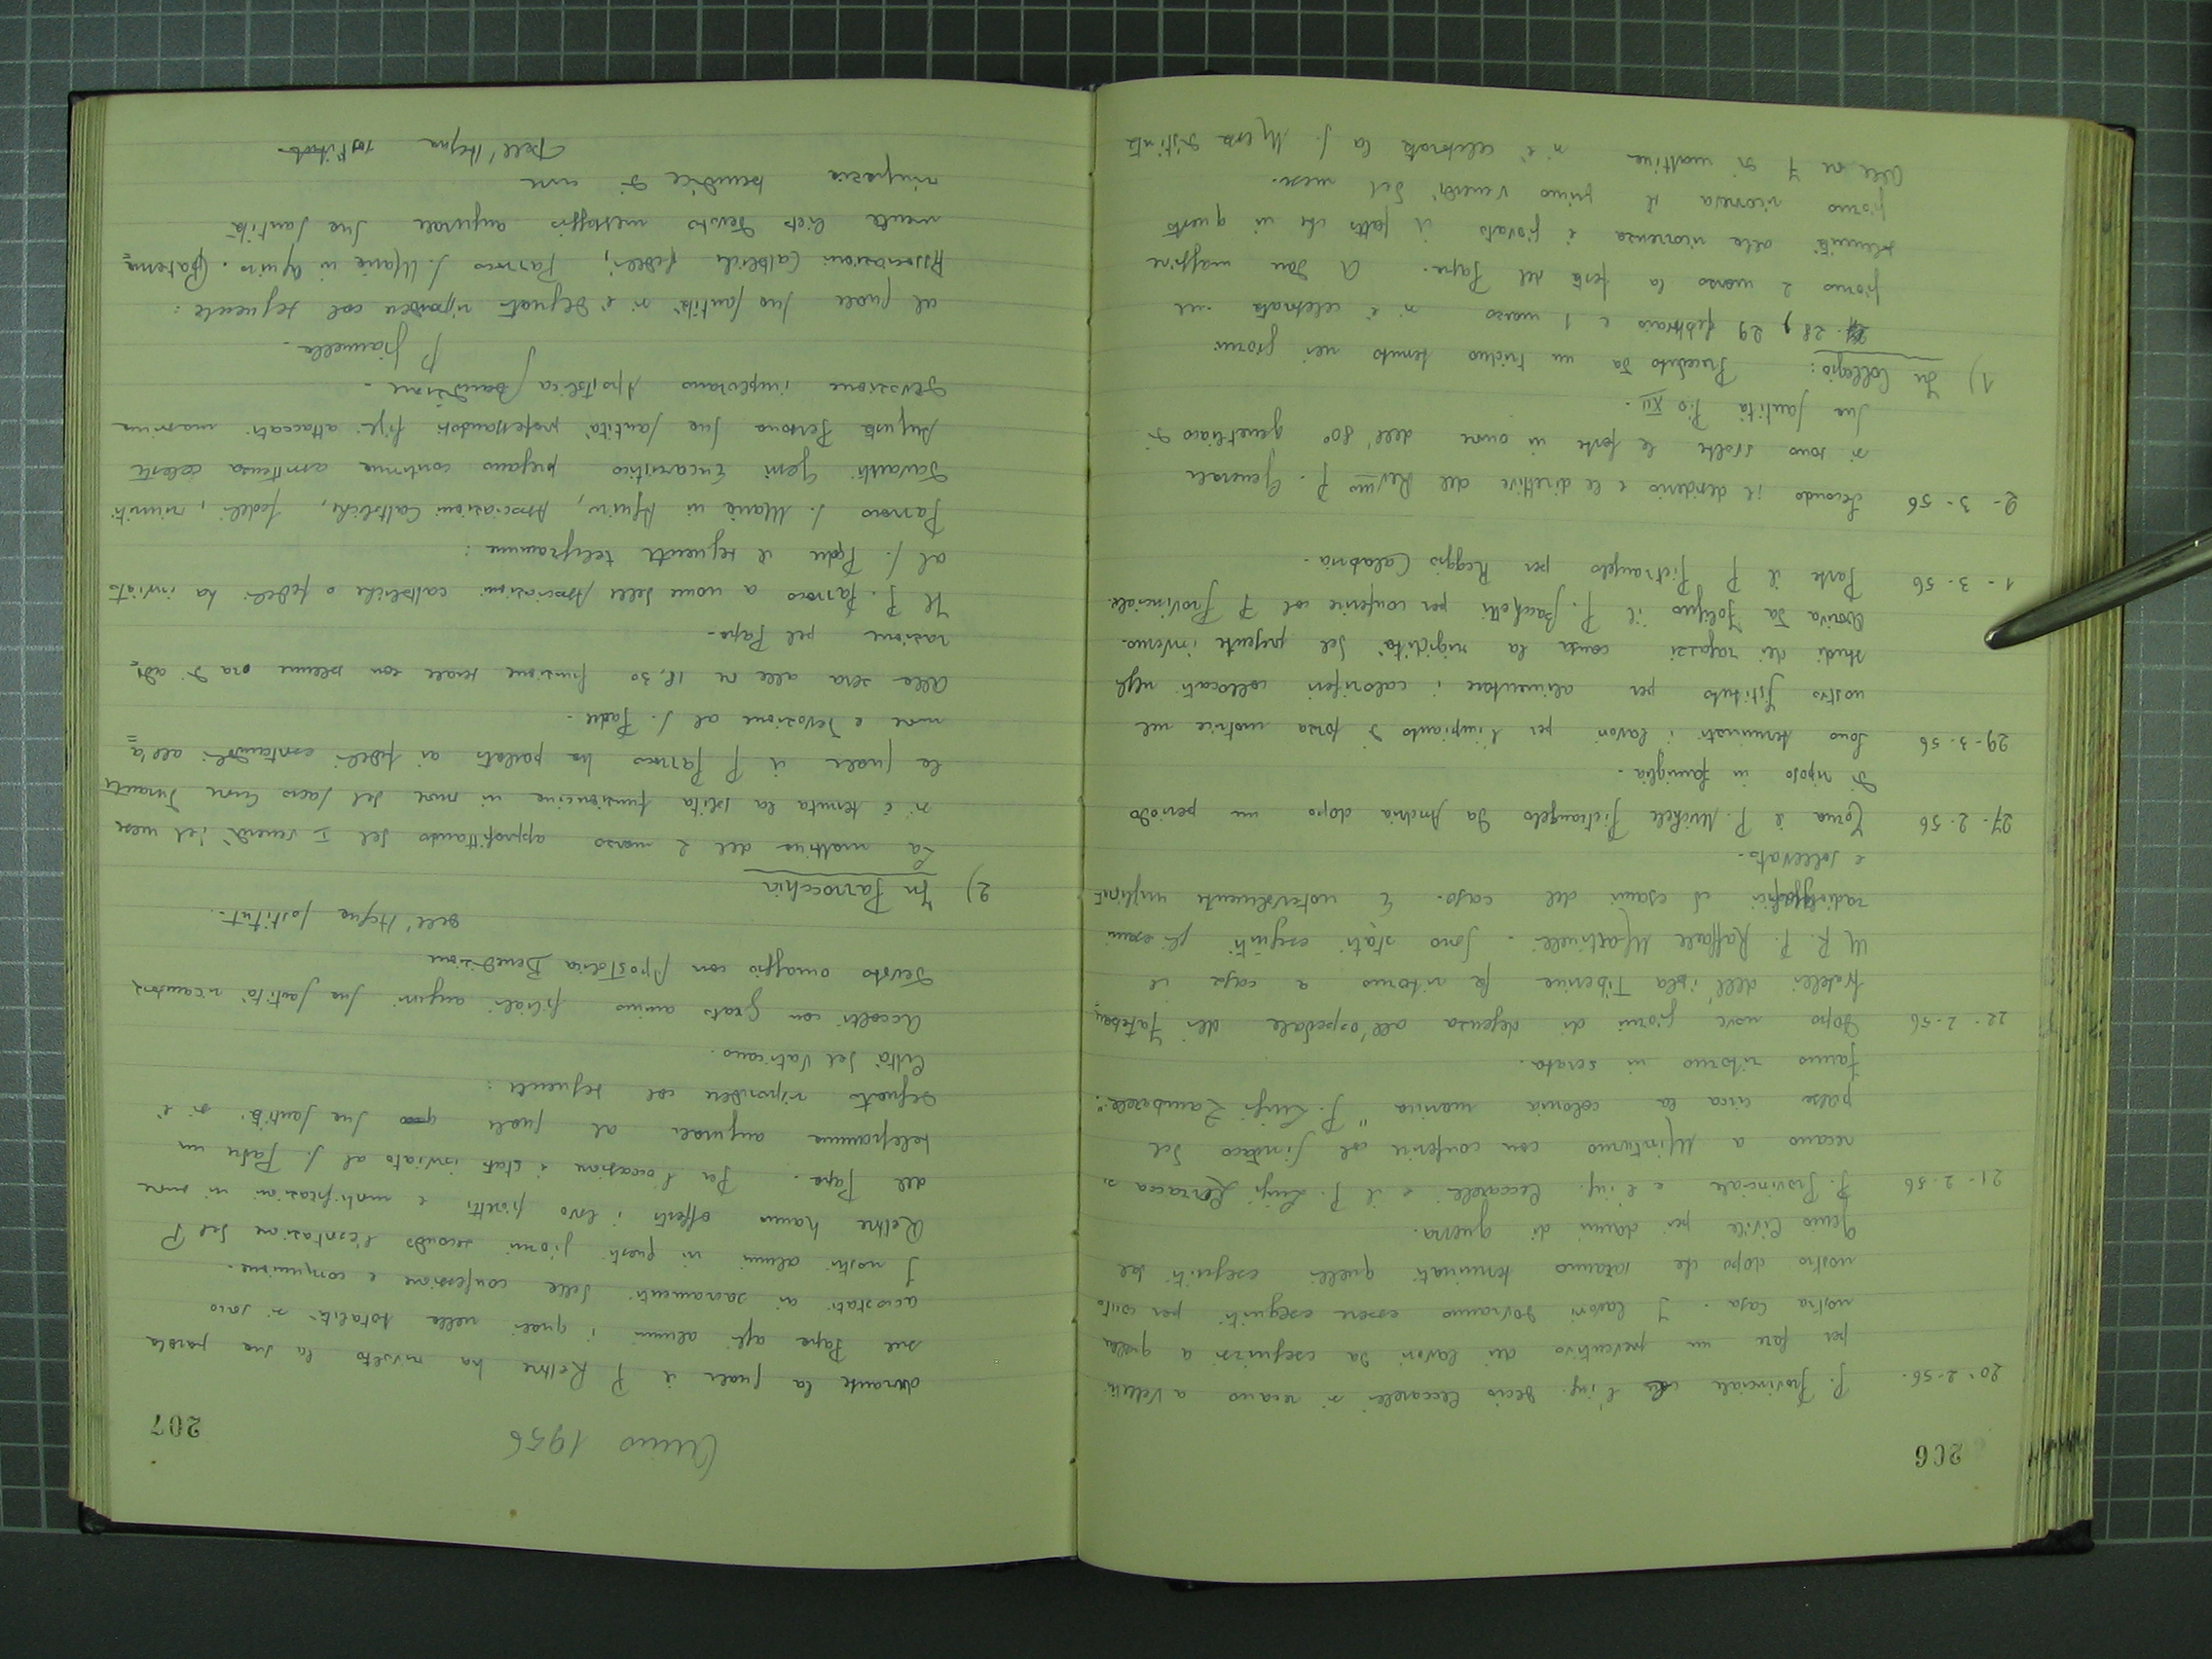 206
20-2-56. P. Provinciale e l'ing. Decio Ceccarelli si recano a Velletri
per fare un preventivo dei lavori da eseguirsi a quella
nostra casa. I lavori dovranno essere eseguiti per conto
nostro dopo che saranno terminati quelli eseguiti dal
Genio Civile per danni di guerra.
21-2-56 P. Provinciale e l'ing. Ceccarelli e il P. Luigi si
recano a Minturno con conferire col Sindaco del
paese circa la colonia marina "P. Luigi Zambarelli".
Fanno ritorno in serata.
22-2-56 Dopo nove giorni di degenza all'ospedale dei Fatebene
fratelli dell'isola Tiberina fa ritorno a casa il
M. R. P. Raffaele Martinelli. Sono stati eseguiti gli esami
radiografici ed esami del caso. È notevolmente
e sollevato.
27-2-56 Torna il P. Michele Pietrangelo da Andria dopo un periodo
di riposo in famiglia.
29-3-56 Sono terminati i lavori per l'impianto di forza motrice nel
nostro Istituto per alimentare i caloriferi collocati negli
studi dei ragazzi causa la rigidità del presente inverno.
Arriva da Foligno il P. per conferire col P. Provinciale.
1-3-56 Parte il P Pietrangelo per Reggio Calabria.
2-3-56 Secondo il desiderio e le direttive del Rev.mo P. Generale
si sono svolte le feste in onore dell'80° genetliaco di
Sua Santità Pio XII.
1) In Collegio: Preceduto da un triduo tenuto nei giorni
28, 29 febbraio e 1 marzo si è celebrata nel
giorno 2 marzo la festa del Papa. A dare maggiore
solennità alla ricorrenza è giovato il fatto che in questo
giorno ricorreva il primo venerdì del mese.
Alle ore 7 di mattina si è celebrata la S. Messa distinta
Anno 1956
207
durante la quale il P Rettore ha rivolto la sua parola
sul Papa agli alunni i quali nella totalità si sono
accostati ai sacramenti della confessione e comunione.
I nostri alunni in questi giorni secondo l'esortazione del P
Rettore hanno offerti i loro fioretti e mortificazioni in onore
del Papa. Per l'occasione è stato inviato al S. Padre un
telegramma augurale al quale Sua Santità si è
degnato rispondere col seguente:
Città del Vaticano.
Accolti con grato animo filiali auguri Sua Santità ricambia
devoto omaggio con Apostolica Benedizione
Dell'Acqua Sostituto.
2) In Parrocchia
La mattina del 2 marzo approfittando del I venerdì del mese
si è tenuta la solita funzioncina in onore del Sacro Cuore durante
la quale il P Parroco ha parlato ai fedeli esortandoli all'a
more e devozione al S. Padre.
Alla sera alle ore 18,30 funzione serale con solenne ora di ado
razione pel Papa.
Il P. Parroco a nome delle Associazioni cattoliche e fedeli ha inviato
al S. Padre il seguente telegramma:
Parroco S. Maria in Aquiro, Associazioni Cattoliche, fedeli, riuniti
davanti Gesù Eucaristico pregano continua assistenza celeste
Augusta Persona Sua Santità professandosi figli attaccati massima
devozione implorano Apostolica Benedizione.
P Giannella.
Al quale Sua Santità si è degnata rispondere col seguente:
Associazioni Cattoliche, fedeli, Parroco S. Maria in Aquiro. Paterna
mente lieto devoto messaggio augurale Sua Santità
ringrazia benedice di cuore
Dell'Acqua sostituto